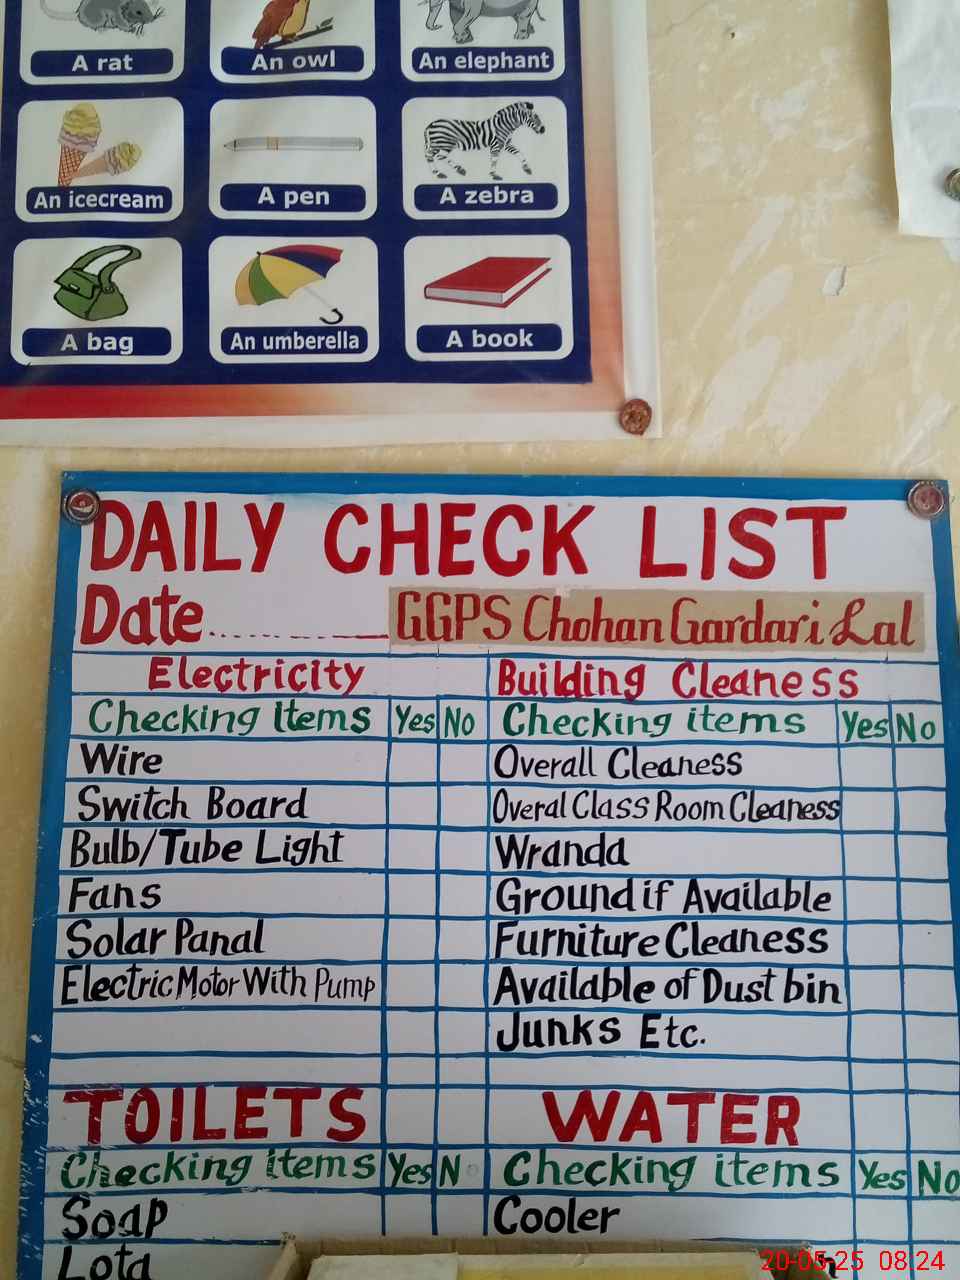 A rat An owl An elephant
An icecream A pen A zebra
A bag An umberella A book
DAILY CHECK LIST
Date.................. GGPS Chohan Gardari Lal
Electricity Building Cleaness
Checking Items Yes No Checking items Yes No
Wire Overall Cleaness
Switch Board Overal Class Room Cleaness
Bulb/Tube Light Wranda
Fans Ground if Available
Solar Panal Furniture Cleaness
Electric Motor With Pump Available of Dust bin
Junks Etc.
TOILETS WATER
Checking items Yes N Checking items Yes No
Soap Cooler
Lota
20-05-25 08:24